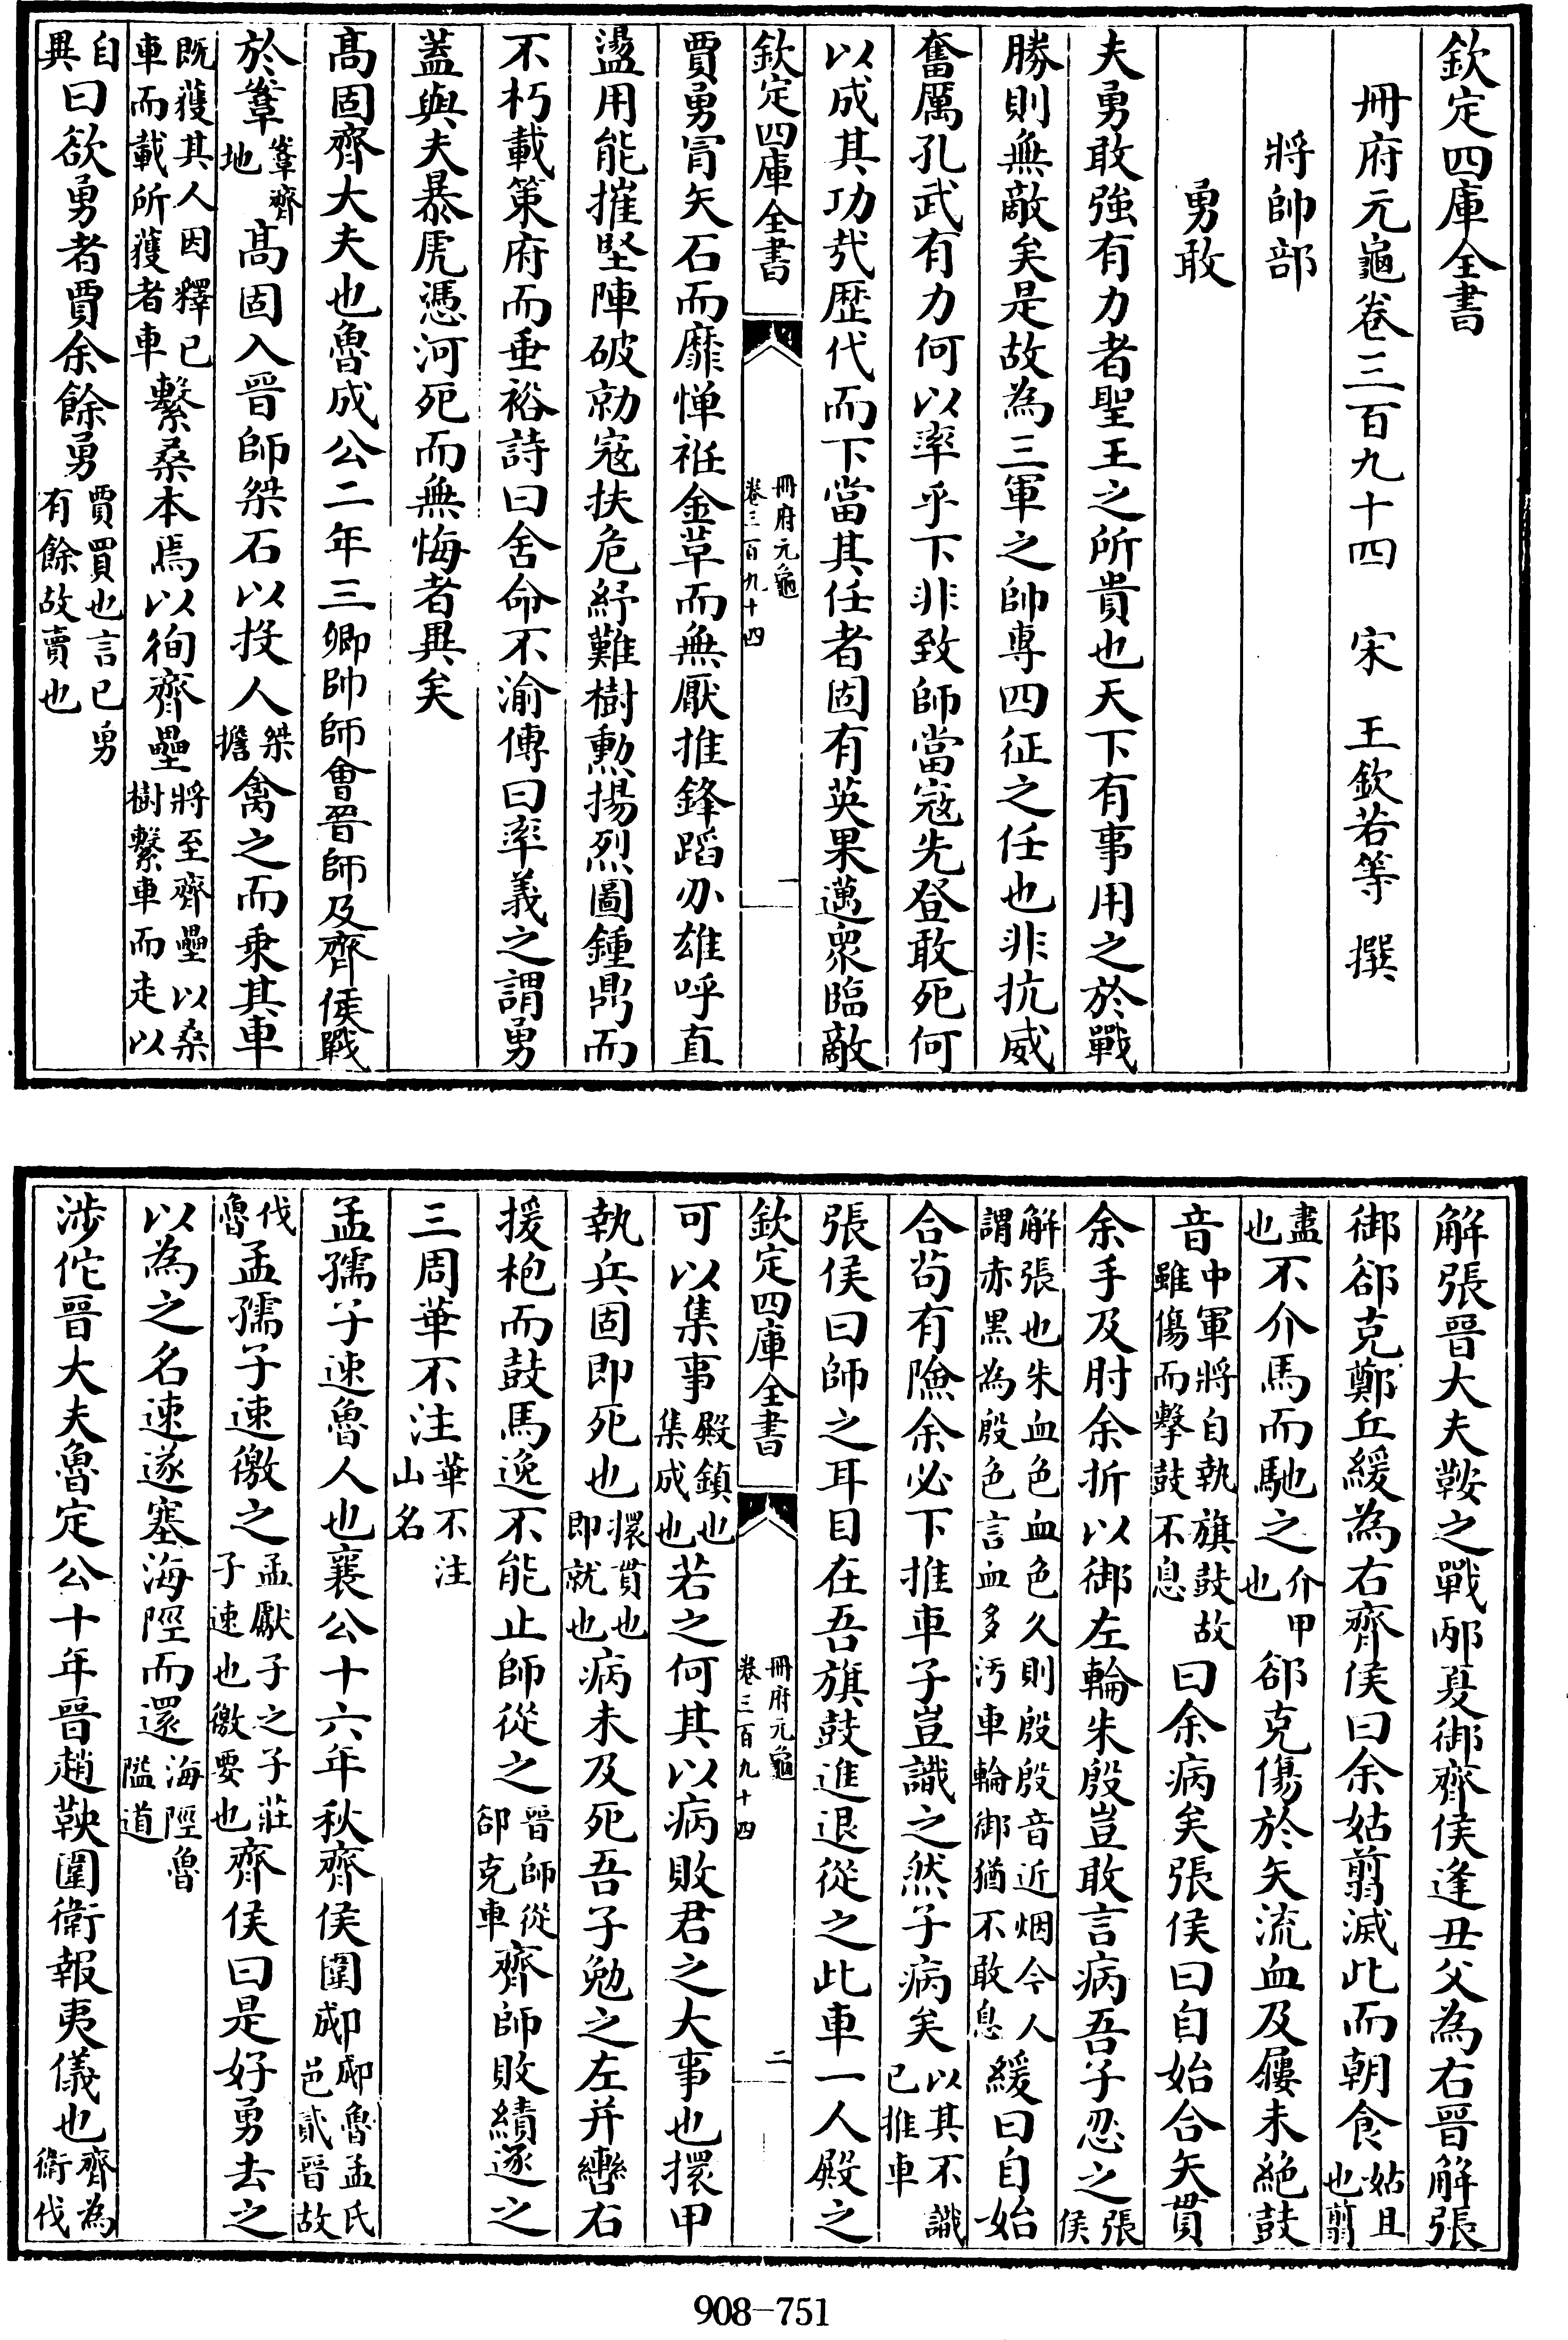 欽定四庫全書
冊府元龜卷三百九十四　宋　王欽若等　撰
將帥部
勇敢
夫勇敢強有力者聖王之所貴也天下有事用之於戰
勝則無敵矣是故為三軍之帥專四征之任也非抗威
奮厲孔武有力何以率乎下非致師當寇先登敢死何
以成其功㢤歴代而下當其任者固有英果邁衆臨敵
欽定四庫全書
冊府元龜
卷三百九十四
一
賈勇冐矢石而靡惮袵金革而無厭推鋒蹈刅雄呼直
盪用能摧堅陣破勍寇扶危紓難樹勲揚烈圖鍾鼎而
不朽載策府而垂裕詩曰舍命不渝傳曰率義之謂勇
蓋與夫暴虎憑河死而無悔者異矣
髙固齊大夫也魯成公二年三卿帥師會晉師及齊侯戰
於鞌鞌齊地髙固入晉師桀石以投人桀擔禽之而乗其車
既獲其人因釋己車而載所獲者車繫桑本焉以徇齊壘將至齊壘以桑樹繫車而走以
自異曰欲勇者賈余餘勇賈買也言已勇有餘故賣也
解張晉大夫鞍之戰邴夏御齊侯逢丑父為右晉解張
御郤克鄭丘緩為右齊侯曰余姑翦滅此而朝食姑且也翦
盡也不介馬而馳之介甲也郤克傷於矢流血及屨未絶鼓
音中軍將自執旗鼓故雖傷而擊鼓不息曰余病矣張侯曰自始合矢貫
余手及肘余折以御左輪朱殷豈敢言病吾子忍之張侯
解張也朱血色血色久則殷殷音近烟今人謂赤黑為殷色言血多汚車輪御猶不敢息緩曰自始
合茍有險余必下推車子豈識之然子病矣以其不識已推車
張侯曰師之耳目在吾旗鼓進退從之此車一人殿之
欽定四庫全書
冊府元龜
卷三百九十四
二
可以集事殿鎮也集成也若之何其以病敗君之大事也擐甲
執兵固即死也擐貫也即就也病未及死吾子勉之左并轡右
援枹而鼓馬逸不能止師從之晉師從郤克車齊師敗績逐之
三周華不注華不注山名
孟孺子速魯人也襄公十六年秋齊侯圍郕郕魯孟氏邑貳晉故
伐魯孟孺子速徼之孟獻子之子莊子速也徼要也齊侯曰是好勇去之
以為之名速遂塞海陘而還海陘魯隘道
涉佗晉大夫魯定公十年晉趙鞅圍衛報夷儀也齊為衛伐
908-751